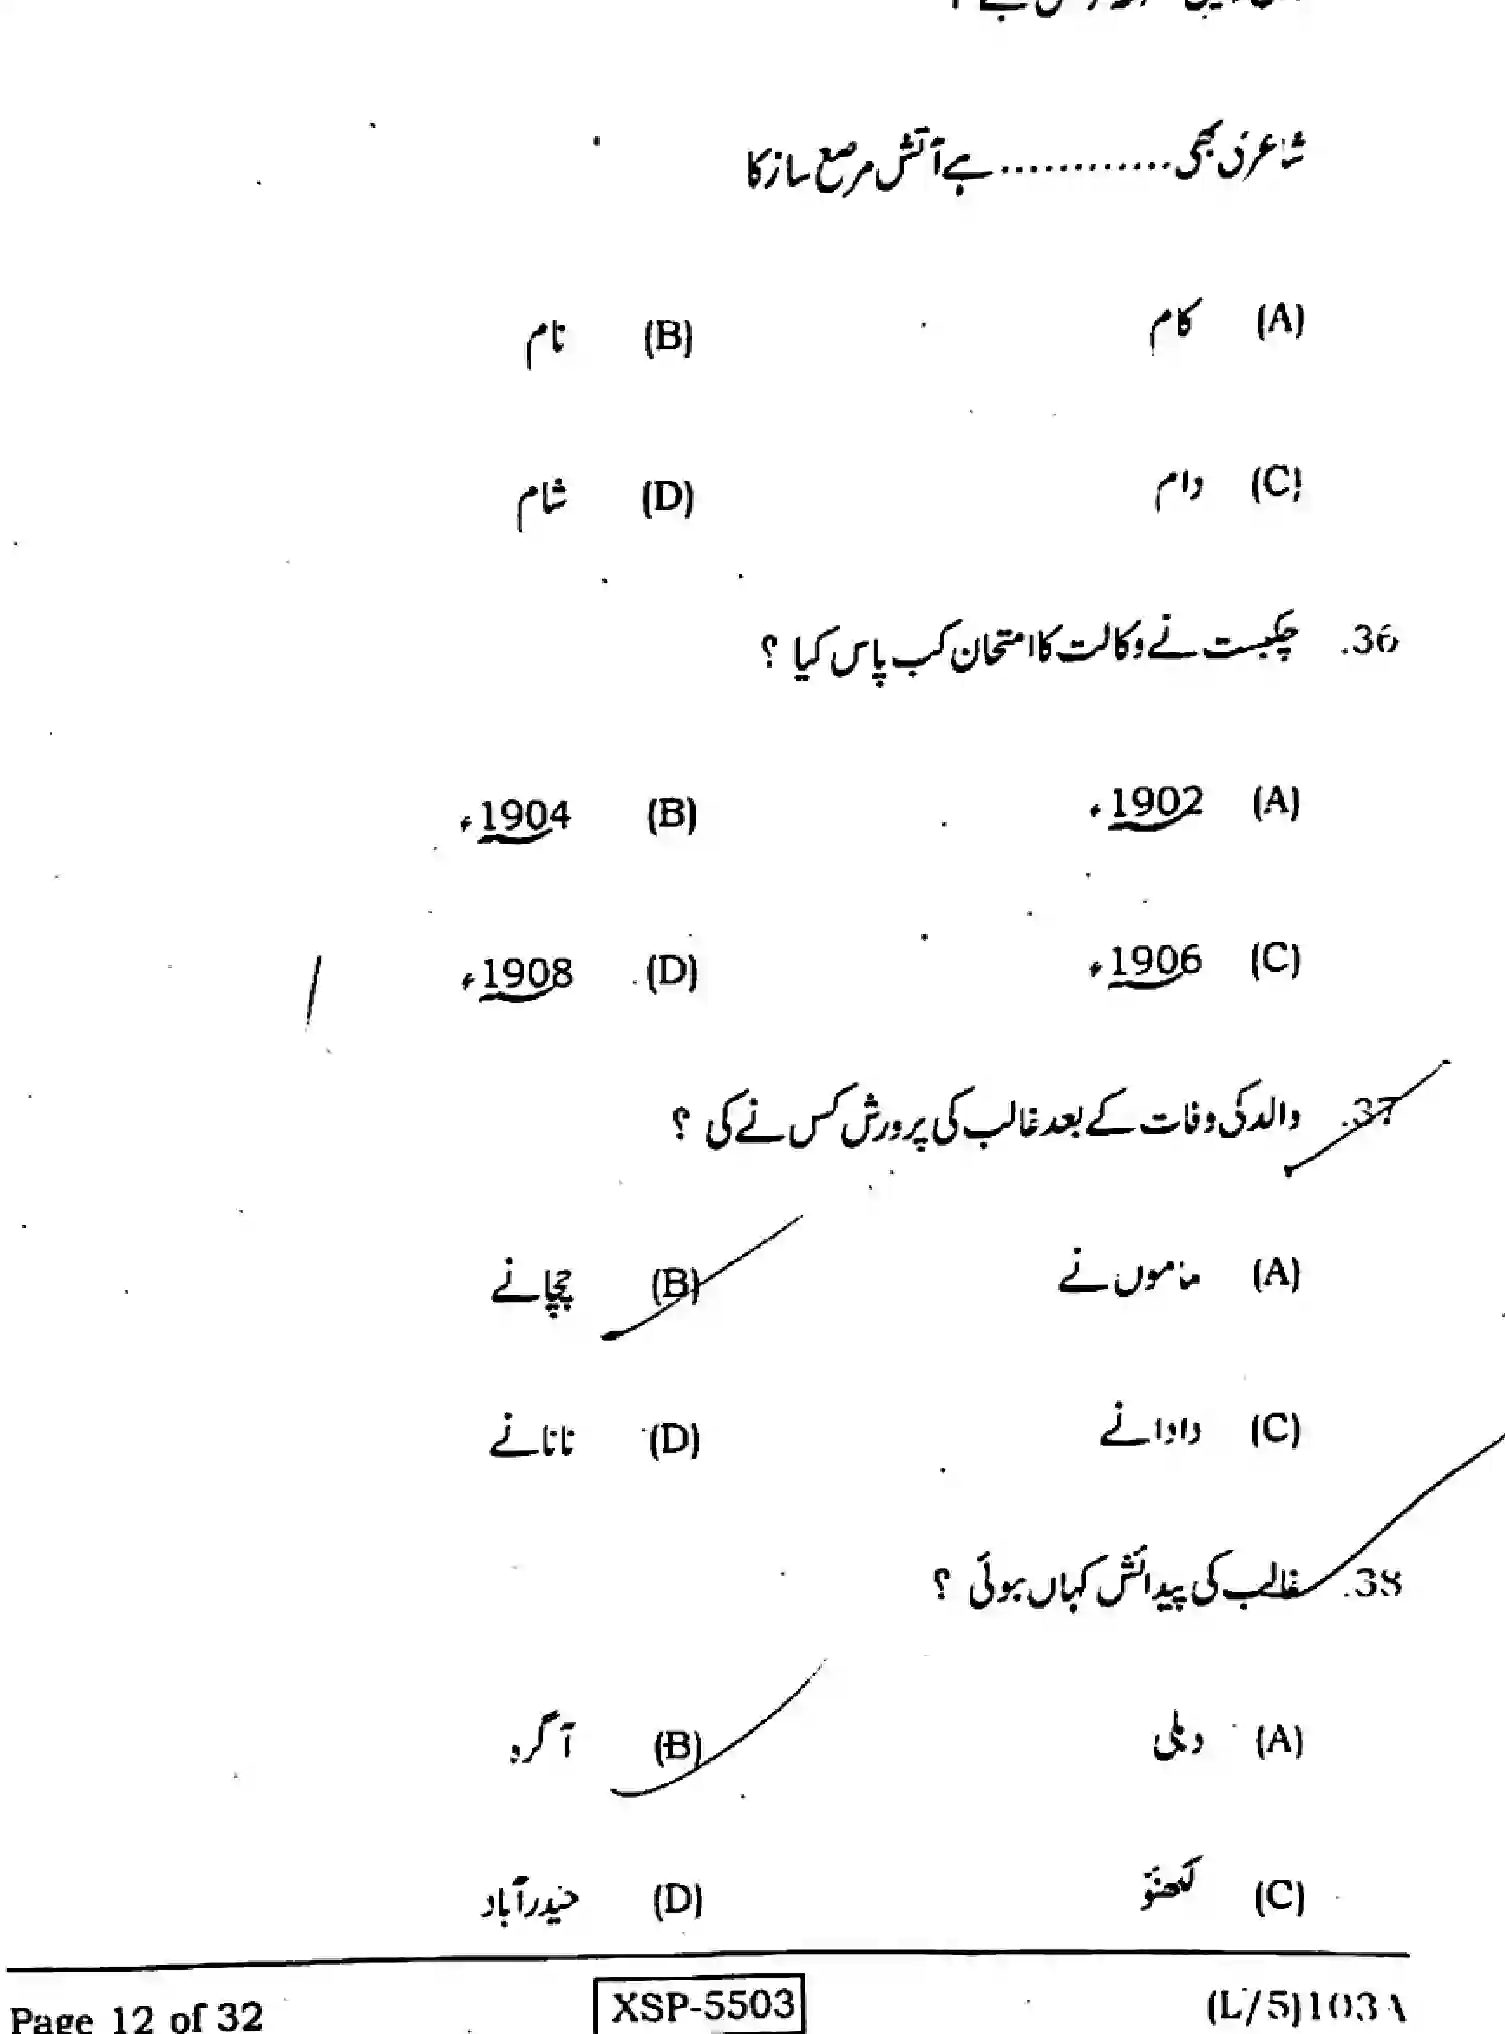 شاعری بھی ............ ہے آتش مرصع ساز کا
(A) کام (B) نام
(C) دام (D) شام
36. چکبست نے وکالت کا امتحان کب پاس کیا ؟
(A) 1902ء (B) 1904ء
(C) 1906ء (D) 1908ء
37. والد کی وفات کے بعد غالب کی پرورش کس نے کی ؟
(A) ماموں نے (B) چچا نے
(C) دادا نے (D) نانا نے
38. غالب کی پیدائش کہاں ہوئی ؟
(A) دہلی (B) آگرہ
(C) لکھنؤ (D) حیدرآباد
(L/5)103A XSP-5503 Page 12 of 32